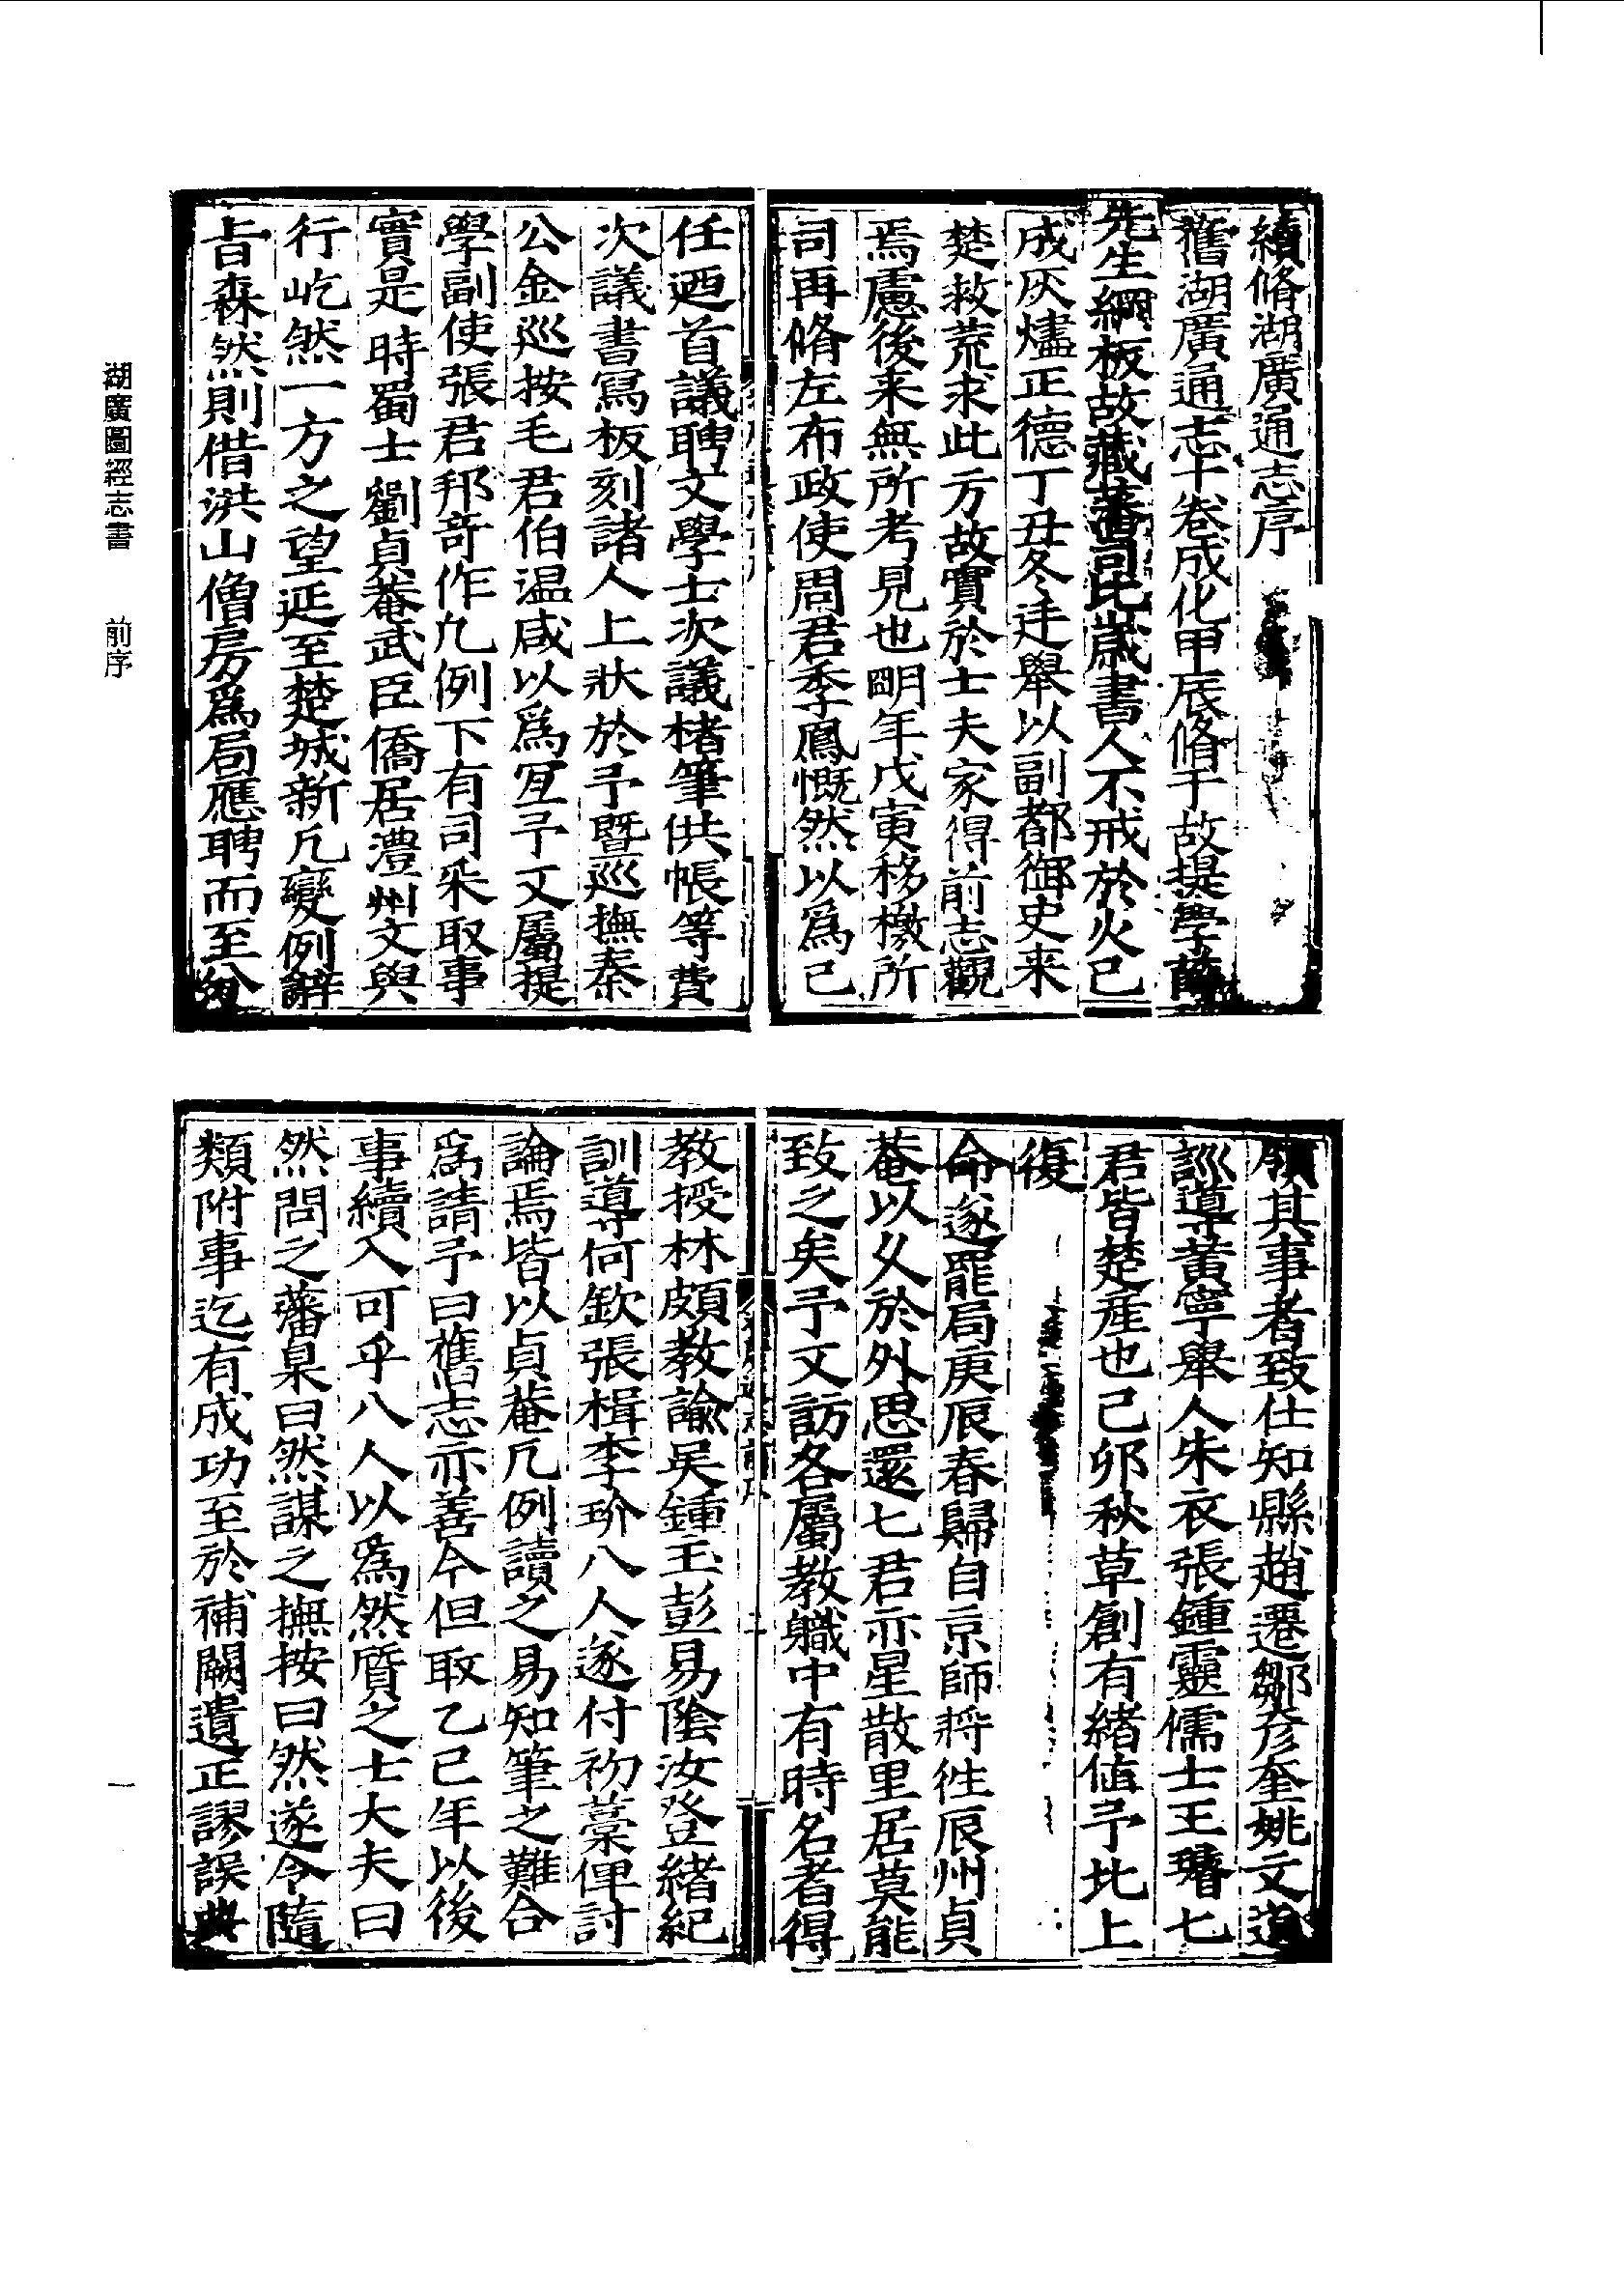 續脩湖廣通志序
舊湖廣通志十卷成化甲辰脩于故提學薛
先生綱板故藏藩司比歲書人不戒於火已
成灰燼正德丁丑冬迋舉以副都御史来
楚救荒求此方故實於士夫家得前志觀
焉慮後来無所考見也明年戊寅移檄所
司再脩左布政使周君季鳳慨然以爲己
任廼首議聘文學士次議楮筆供帳等費
次議書寫板刻諸人上狀於予暨巡撫秦
公金巡按毛君伯温咸以爲宜予又屬提
學副使張君邦竒作凡例下有司采取事
實是時蜀士劉貞菴武臣僑居澧州文與
行屹然一方之望延至楚城新凡變例辭
㫖森然則借洪山僧房爲局應聘而至分
領其事者致仕知縣趙遷鄒彦奎姚文道
訓導黃寧舉人朱衣張鍾靈儒士王璿七
君皆楚産也己卯秋草創有緒值予北上
復
命遂罷局庚辰春歸自京師將徃辰州貞
菴以久於外思還七君亦星散里居莫能
致之矣予又訪各屬教職中有時名者得
教授林頗教諭吴鍾王彭易陰汝登緒紀
訓導何欽張楫李玠八人遂付初藁俾討
論焉皆以貞菴凡例讀之易知筆之難合
爲請予曰舊志亦善今但取乙巳年以後
事續入可乎八人以爲然質之士大夫曰
然問之藩臬曰然謀之撫按曰然遂令隨
類附事迄有成功至於補闕遺正謬誤典
湖廣圖經志書 前序
一